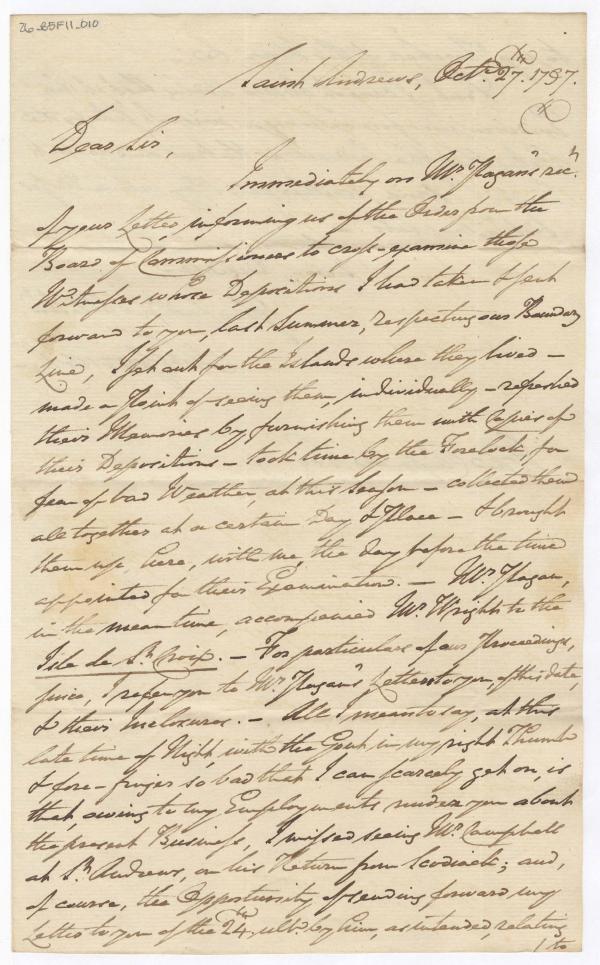 26_B5F11_010
Saint Andrews, Octr. 27th. 1797.
Dear Sir,
Immediately on Mr. Pagan's rect.
of your Letter, informing us of the Order from the
Board of Commissioners to cross-examine those
Witnesses whose Depositions I had taken & sent
forward to you, last Summer, respecting our Boundary
Line, I set out for the Islands where they lived —
made a Point of seeing them, individually — refreshed
their Memories by furnishing them with Copies of
their Depositions — took time by the Forelock, for
fear of bad Weather, at this Season — collected them
all together at a certain Day & Place — & brought
them up, here, with me, the day before the time
appointed for their Examination. — Mr. Pagan,
in the mean time, accompanied Mr. Wright to the
Isle de St. Croix. — For particulars of our Proceedings,
since, I refer you to Mr. Pagan's Letters to you, of this date,
& their Inclosures. — All I mean to say, at this
late time of Night, with the Gout in my right Thumb
& fore-finger so bad that I can scarcely get on, is
that, owing to my Employments under you about
the present Business, I missed seeing Mr. Campbell
at St. Andrews, on his Return from Scoodeck; and,
of course, the Opportunity of sending forward my
Letter to you of the 24th. ulto. by him, as intended, relating
to